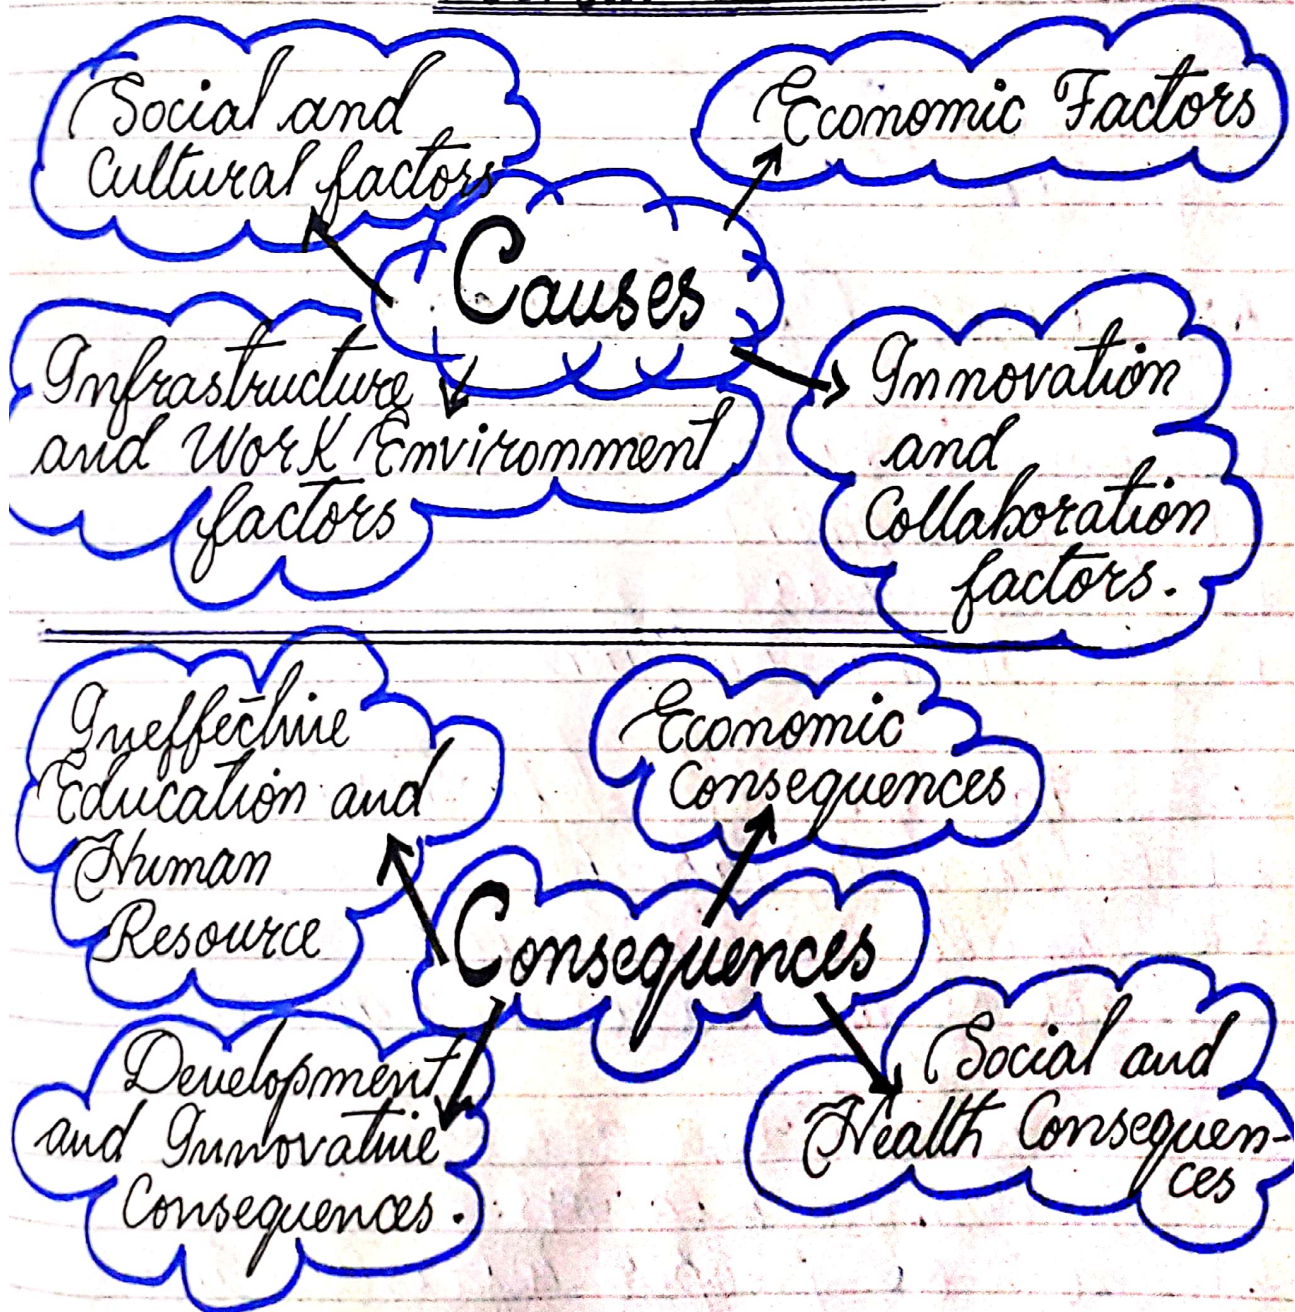 Social and
Cultural factors
Economic Factors
Causes
Infrastructure
and Work Environment
factors
Innovation
and
Collaboration
factors.
Ineffective
Education and
Human
Resource
Economic
Consequences
Consequences
Development
and Innovative
Consequences.
Social and
Health Consequen-
ces